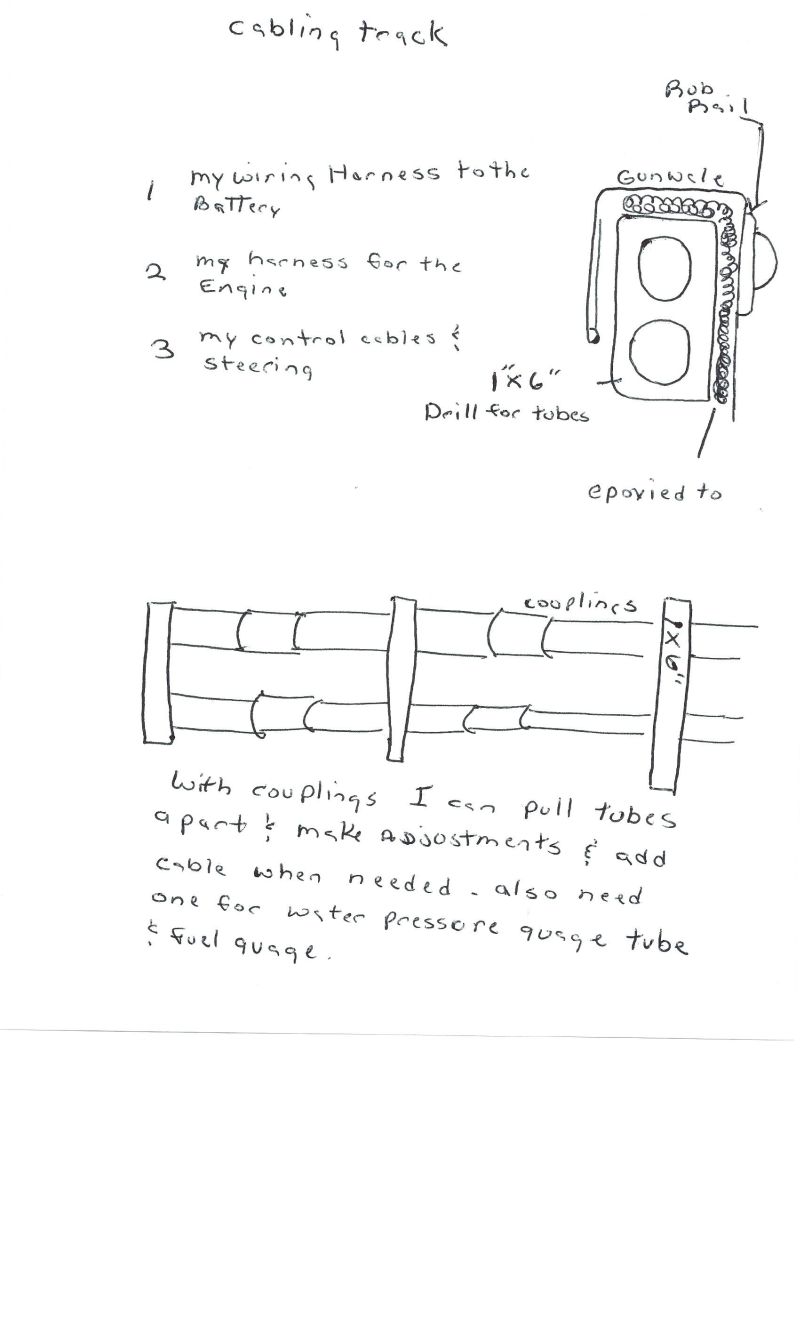 cabling track
Rub
Rail
Gunwale
1 my wiring Harness to the
Battery
2 my harness for the
Engine
3 my control cables &
steering
1"x6"
Drill for tubes
epoxied to
couplings
1x6"
With couplings I can pull tubes
apart & make ADjustments & add
cable when needed - also need
one for water pressure guage tube
& fuel guage.